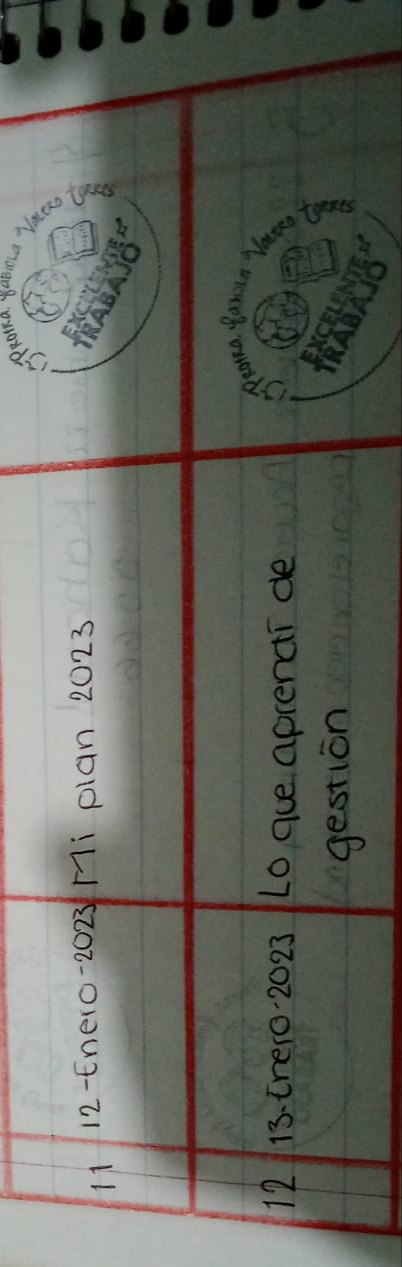 11 12-Enero-2023 Mi plan 2023
Valero Torres
EXCELENTE
TRABAJO
12 13-Enero-2023 Lo que aprendí de
gestión
Valero Torres
EXCELENTE
TRABAJO